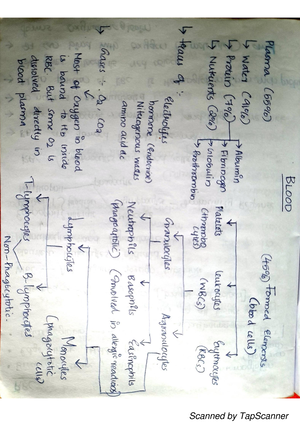 BLOOD
Plasma (55%)
(45%) Formed elements
(blood cells)
↳ Water (91%)
↳ Protein (7%)
↳ Nutrients (2%)
→ Albumin
→ Fibrinogen
→ Globulin
→ Prothrombin
↳ Traces of :
Electrolytes
hormone (Endocrine)
Nitrogenous wastes
amino acid etc
↳ Gases : O₂, CO₂
Most of oxygen in blood
is bound to Hb inside
RBC But some O₂ is
dissolved directly in
blood plasma
Platelets
(thrombo
cytes)
Leukocytes
(WBCs)
Erythrocytes
(RBCs)
Granulocytes
Agranulocytes
Neutrophils
(phagocytic)
Basophils
Eosinophils
(Involved in allergic reactions)
Lymphocytes
Monocytes
(phagolytic
cells)
T-lymphocytes
B-lymphocytes
Non-Phagicytotic.
Scanned by TapScanner